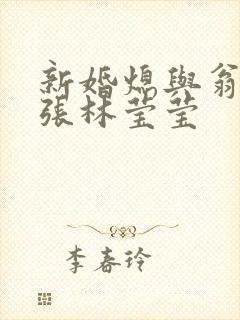 新婚熄與翁
張林莹莹
李春玲